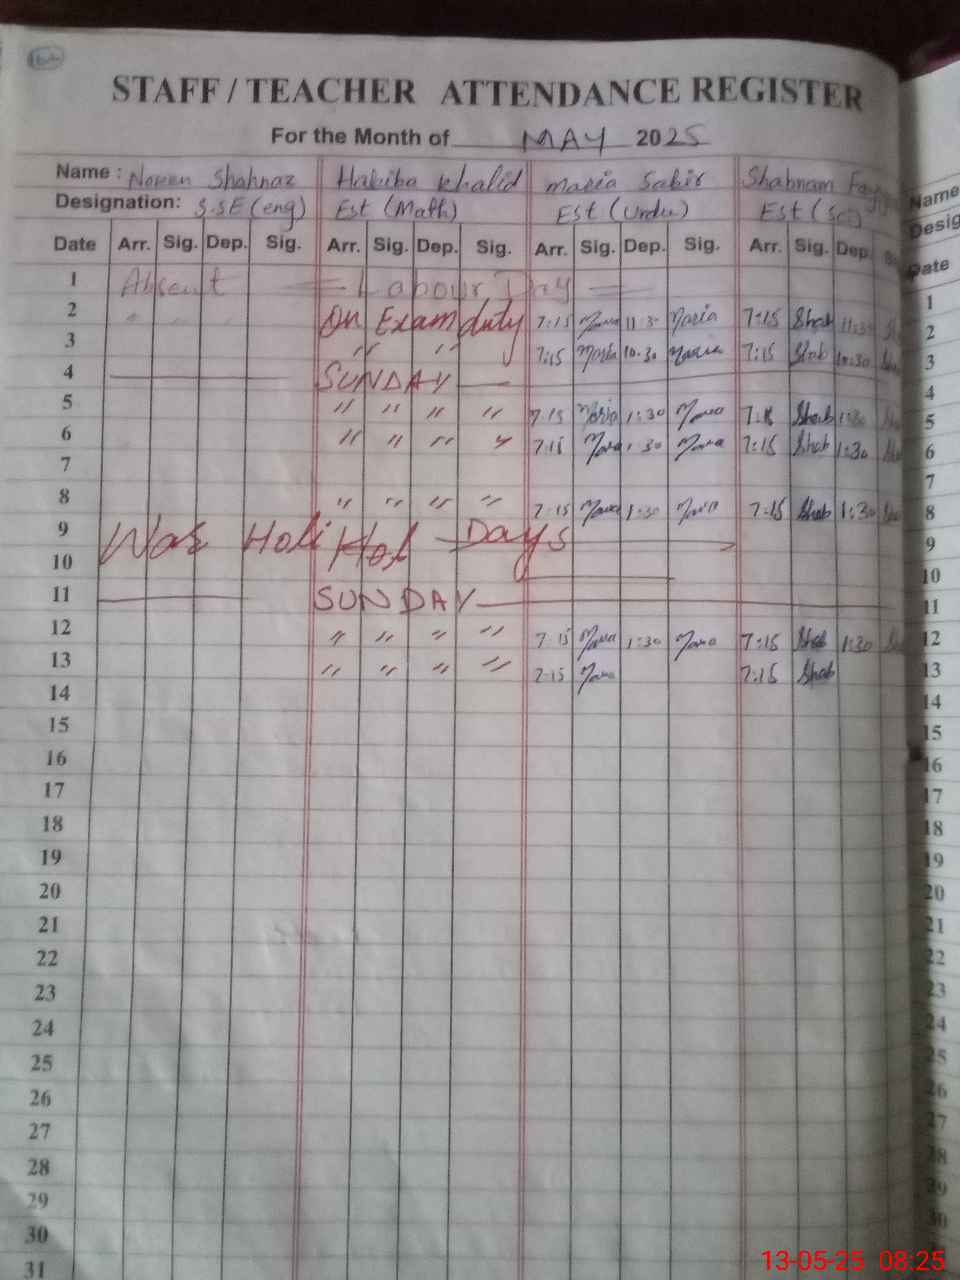 STAFF / TEACHER ATTENDANCE REGISTER
For the Month of MAY 2025
Name : Noreen Shahnaz Habiba Khalid Maria Sabir Shabnam Name
Designation: S.S.E (eng) Est (Math) Est (Urdu) Est (Sci) Desig
Date Arr. Sig. Dep. Sig. Arr. Sig. Dep. Sig. Arr. Sig. Dep. Sig. Arr. Sig. Dep. Date
1 Absent Labour Day 1
2 " " " On Exam duty 7:15 Maria 11:30 Maria 7:15 Shab 11:30 2
3 " " 7:15 Maria 10:30 Maria 7:15 Shab 10:30 3
4 SUNDAY 4
5 " " " " 7:15 Maria 1:30 Maria 7:15 Shab 1:30 5
6 " " " " 7:15 Maria 1:30 Maria 7:15 Shab 1:30 6
7 7
8 " " " " 7:15 Maria 1:30 Maria 7:15 Shab 1:30 8
9 War Holi Hol Days 9
10 10
11 SUNDAY 11
12 " " " " 7:15 Maria 1:30 Maria 7:15 Shab 1:30 12
13 " " " " 7:15 Maria 7:15 Shab 13
14 14
15 15
16 16
17 17
18 18
19 19
20 20
21 21
22 22
23 23
24 24
25 25
26 26
27 27
28 28
29 29
30 30
31
13-05-25 08:25